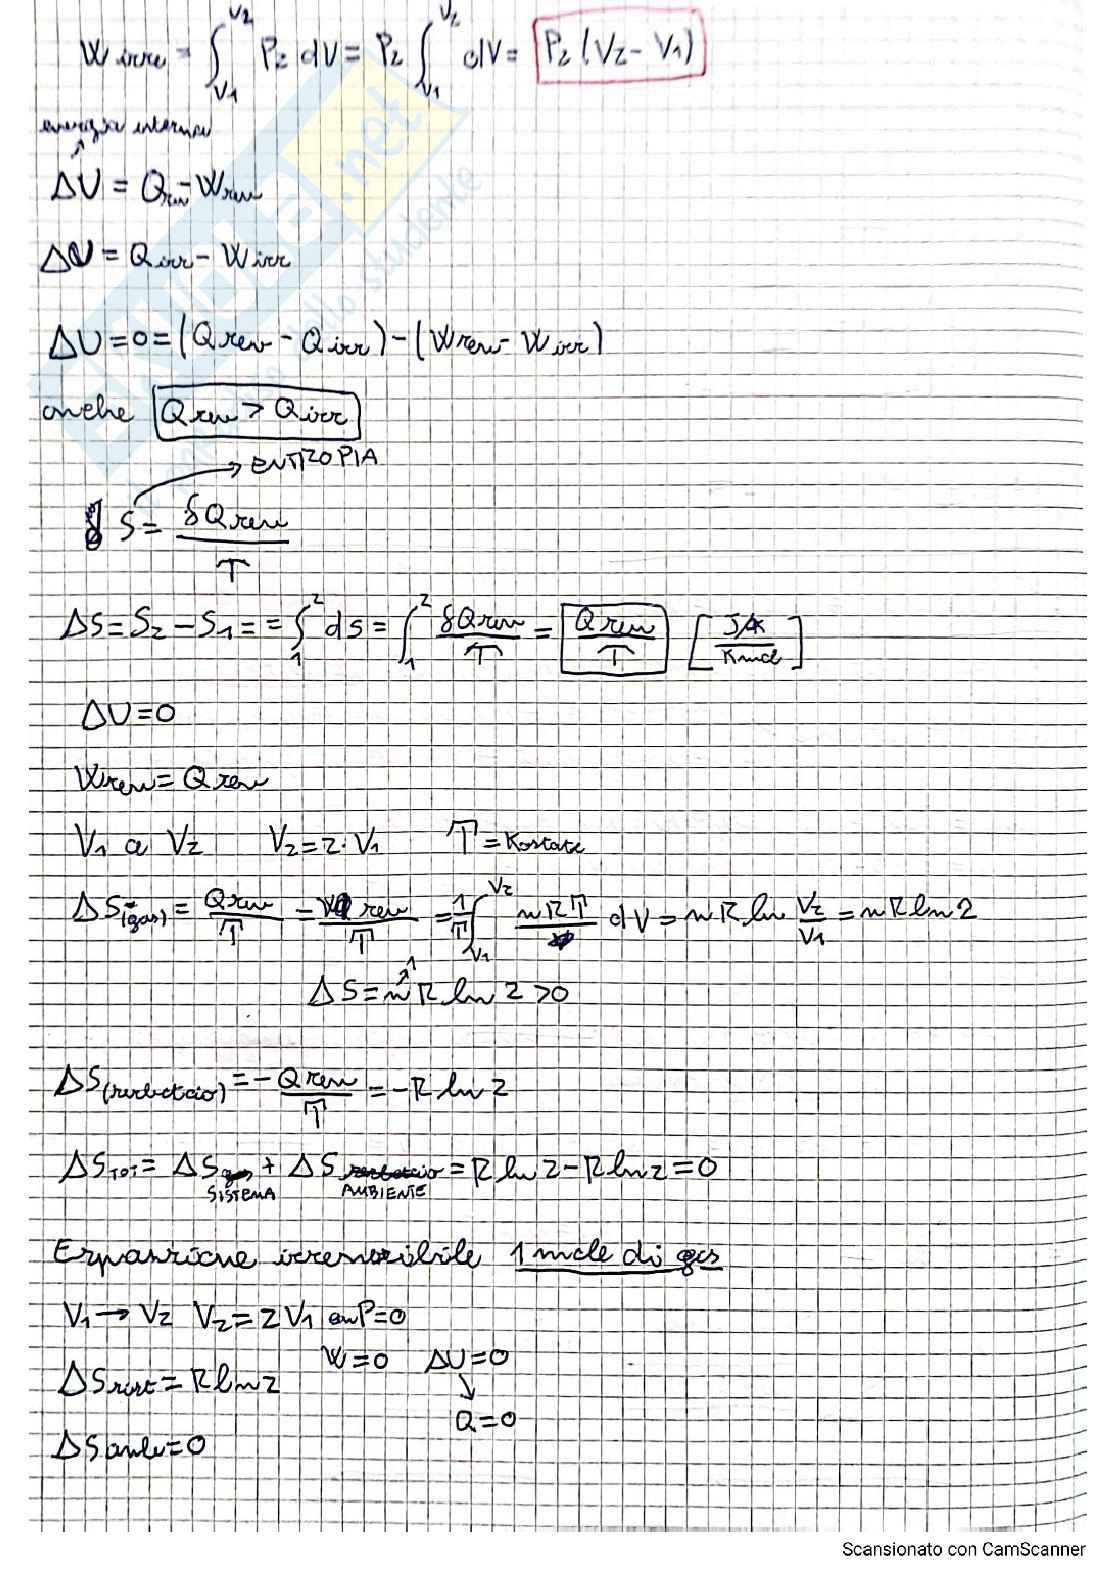 W irre = ∫_{V1}^{V2} P2 dV = P2 ∫_{V1}^{V2} dV = P2 (V2 - V1)
energia interna
ΔU = Qrev - Wrev
ΔU = Qirr - Wirr
ΔU = 0 = (Qrev - Qirr) - (Wrev - Wirr)
anche Qrev > Qirr
→ ENTROPIA
S = δQrev / T
ΔS = S2 - S1 = = ∫_1^2 ds = ∫_1^2 δQrev / T = Qrev / T [J / K mol]
ΔU = 0
Wrev = Qrev
V1 a V2 V2 = 2 · V1 T = Kostate
ΔS(gas) = Qrev / T = W rev / T = 1/T ∫_{V1}^{V2} nRT / V dV = n R ln V2/V1 = n R ln 2
ΔS = n^1 R ln 2 > 0
ΔS(serbatoio) = - Qrev / T = - R ln 2
ΔSTOT = ΔS SISTEMA + ΔS AMBIENTE = R ln 2 - R ln 2 = 0
Espansione irreversibile 1 mole di gas
V1 → V2 V2 = 2 V1 en P = 0
W = 0 ΔU = 0
ΔS sist = R ln 2
Q = 0
ΔS amb = 0
Scansionato con CamScanner